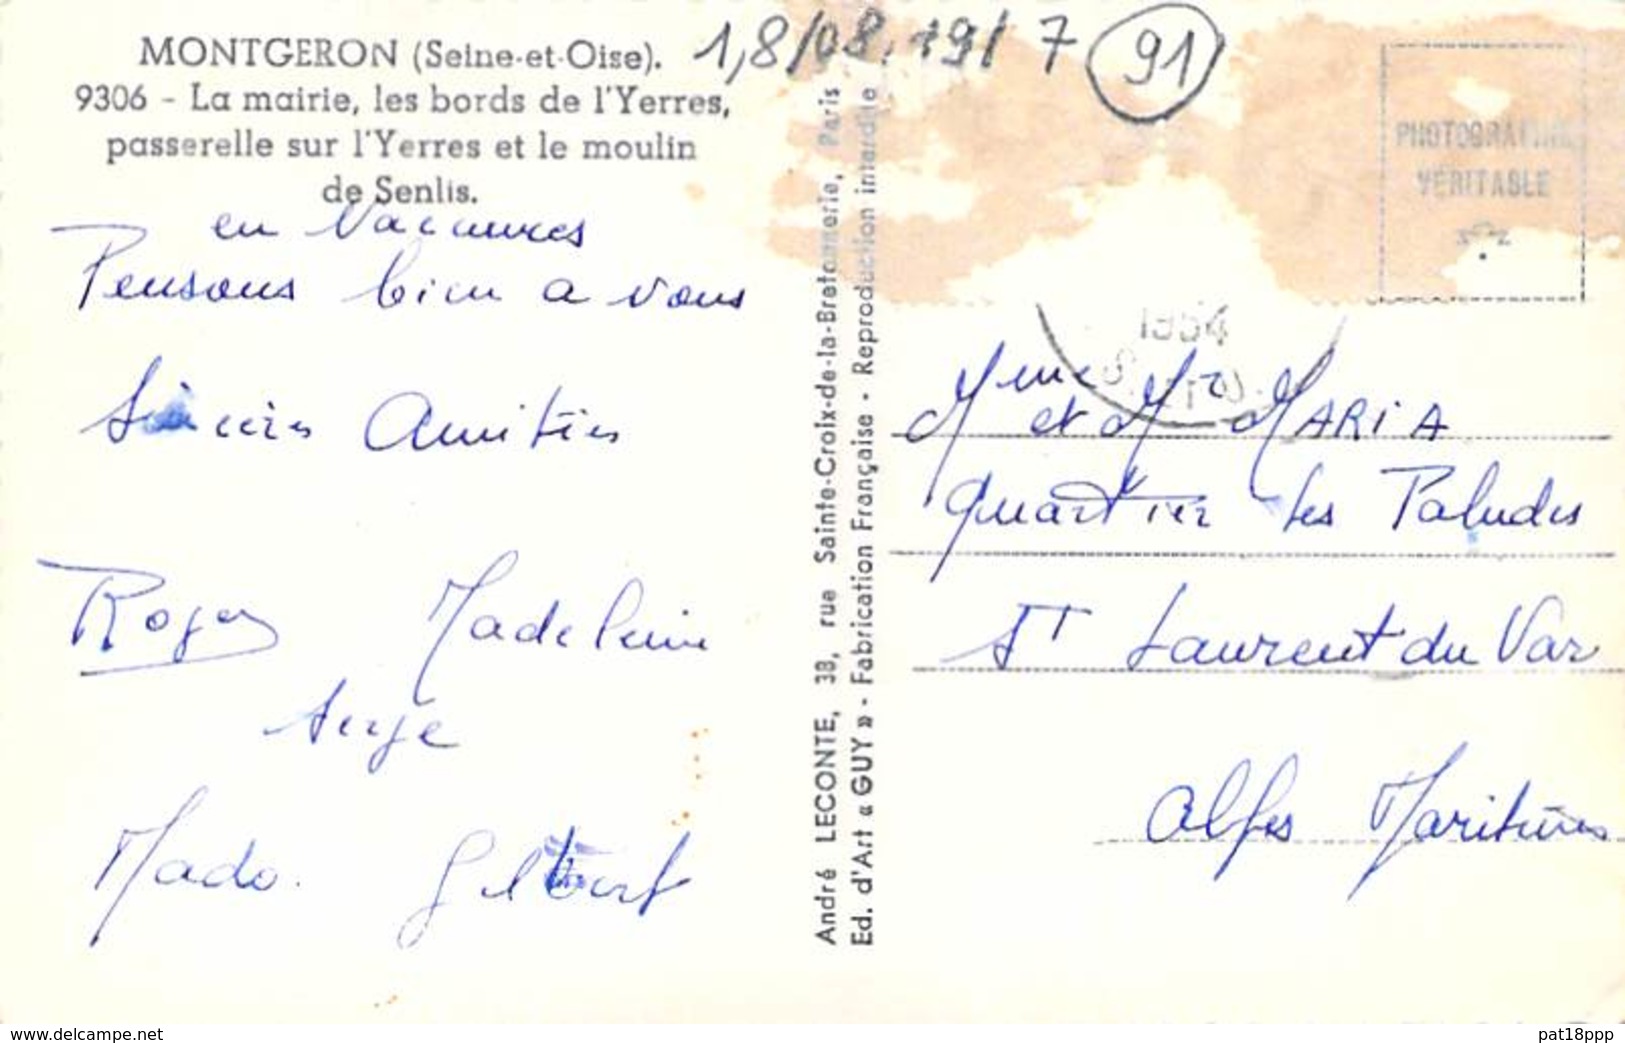 MONTGERON (Seine-et-Oise).
9306 - La mairie, les bords de l'Yerres,
passerelle sur l'Yerres et le moulin
de Senlis.
en Vacances
Pensons bien a vous
Sincères Amitiés
Roger Madeleine
Serge
Mado. Gilbert
André LECONTE, 38, rue Sainte-Croix-de-la-Bretonnerie, Paris
Ed. d'Art « GUY » - Fabrication Française - Reproduction interdite
1,8/08,19/7 91
PHOTOGRAPHIE
VÉRITABLE
1954
Mme et Mr MARIA
Quartier Les Paludes
St Laurent du Var
Alpes Maritimes
www.delcampe.net
pat18ppp